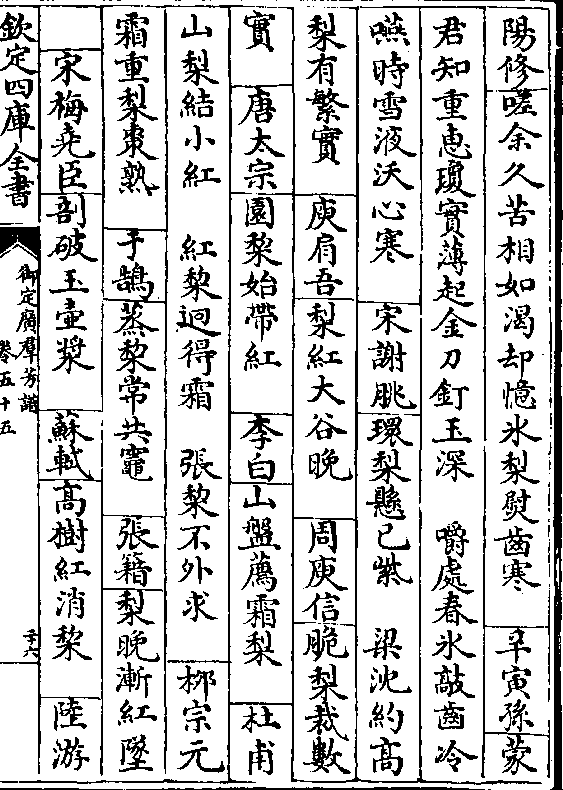 陽修嗟余久苦相如渴却憶氷梨熨齒寒　辛寅孫蒙
君知重惠瓊實薄起金刀釘玉深　嚼處春氷敲齒冷
嚥時雪液沃心寒　宋謝脁環梨懸已紫　梁沈約高
梨有繁實　庾肩吾梨紅大谷晚　周庾信脆梨裁數
實　唐太宗園棃始帶紅　李白山盤薦霜梨　杜甫
山梨結小紅　紅棃迥得霜　張棃不外求　柳宗元
霜重梨棗熟　于鵠蒸棃常共竈　張籍梨晚漸紅墜
宋梅堯臣剖破玉壺漿　蘇軾高樹紅消棃　陸游
欽定四庫全書
御定廣羣芳譜
卷五十五
二十六